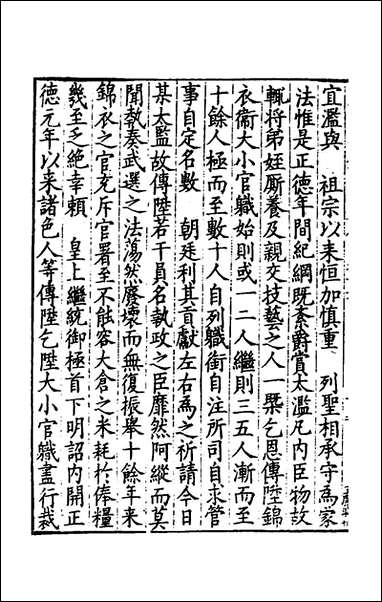 宜濫與　祖宗以来恒加慎重　列聖相承守爲家
法惟是正德年間紀綱既紊爵賞太濫凡内臣物故
輒將弟姪厮養及親交技藝之人一槩乞恩傳陞錦
衣衞大小官軄始則或一二人繼則三五人漸而至
十餘人極而至數十人自列軄銜自注所司自求管
事自定名數　朝廷利其貢獻左右爲之祈請今日
某太監故傳陞若干員名執政之臣靡然阿縱而莫
聞執奏武選之法蕩然廢壊而無復振舉十餘年来
錦衣之官充斥官署至不能容大倉之米耗於俸糧
幾至乏絶幸頼　皇上繼統御極首下明詔内開正
德元年以来諸色人等傳陞乞陞大小官軄盡行裁